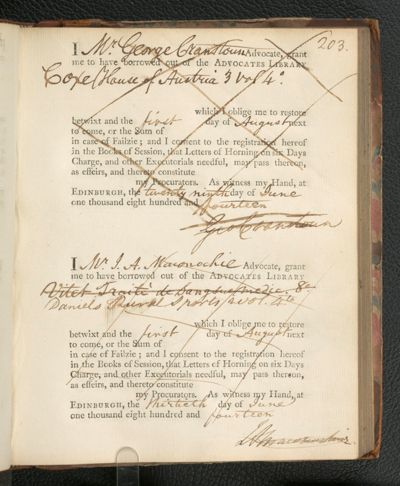 203.
I Mr. George Cranstoun Advocate, grant
me to have borrowed out of the ADVOCATES LIBRARY
Coxe House of Austria 3 vol 4o.
which I oblige me to restore
betwixt and the first day of August next
to come, or the Sum of
in case of Failzie; and I consent to the registration hereof
in the Books of Session, that Letters of Horning on six Days
Charge, and other Executorials needful, may pass thereon,
as effeirs, and thereto constitute
my Procurators. As witness my Hand, at
EDINBURGH, the twenty ninth day of June
one thousand eight hundred and fourteen
Geo Cranstoun
I Mr. J. A. Maconochie Advocate, grant
me to have borrowed out of the ADVOCATES LIBRARY
Vitet Traité de Sangsue 8o
Daniels Rural Sports 2 vol. 4to
which I oblige me to restore
betwixt and the first day of August next
to come, or the Sum of
in case of Failzie; and I consent to the registration hereof
in the Books of Session, that Letters of Horning on six Days
Charge, and other Executorials needful, may pass thereon,
as effeirs, and thereto constitute
my Procurators. As witness my Hand, at
EDINBURGH, the thirtieth day of June
one thousand eight hundred and fourteen
JAMaconochie